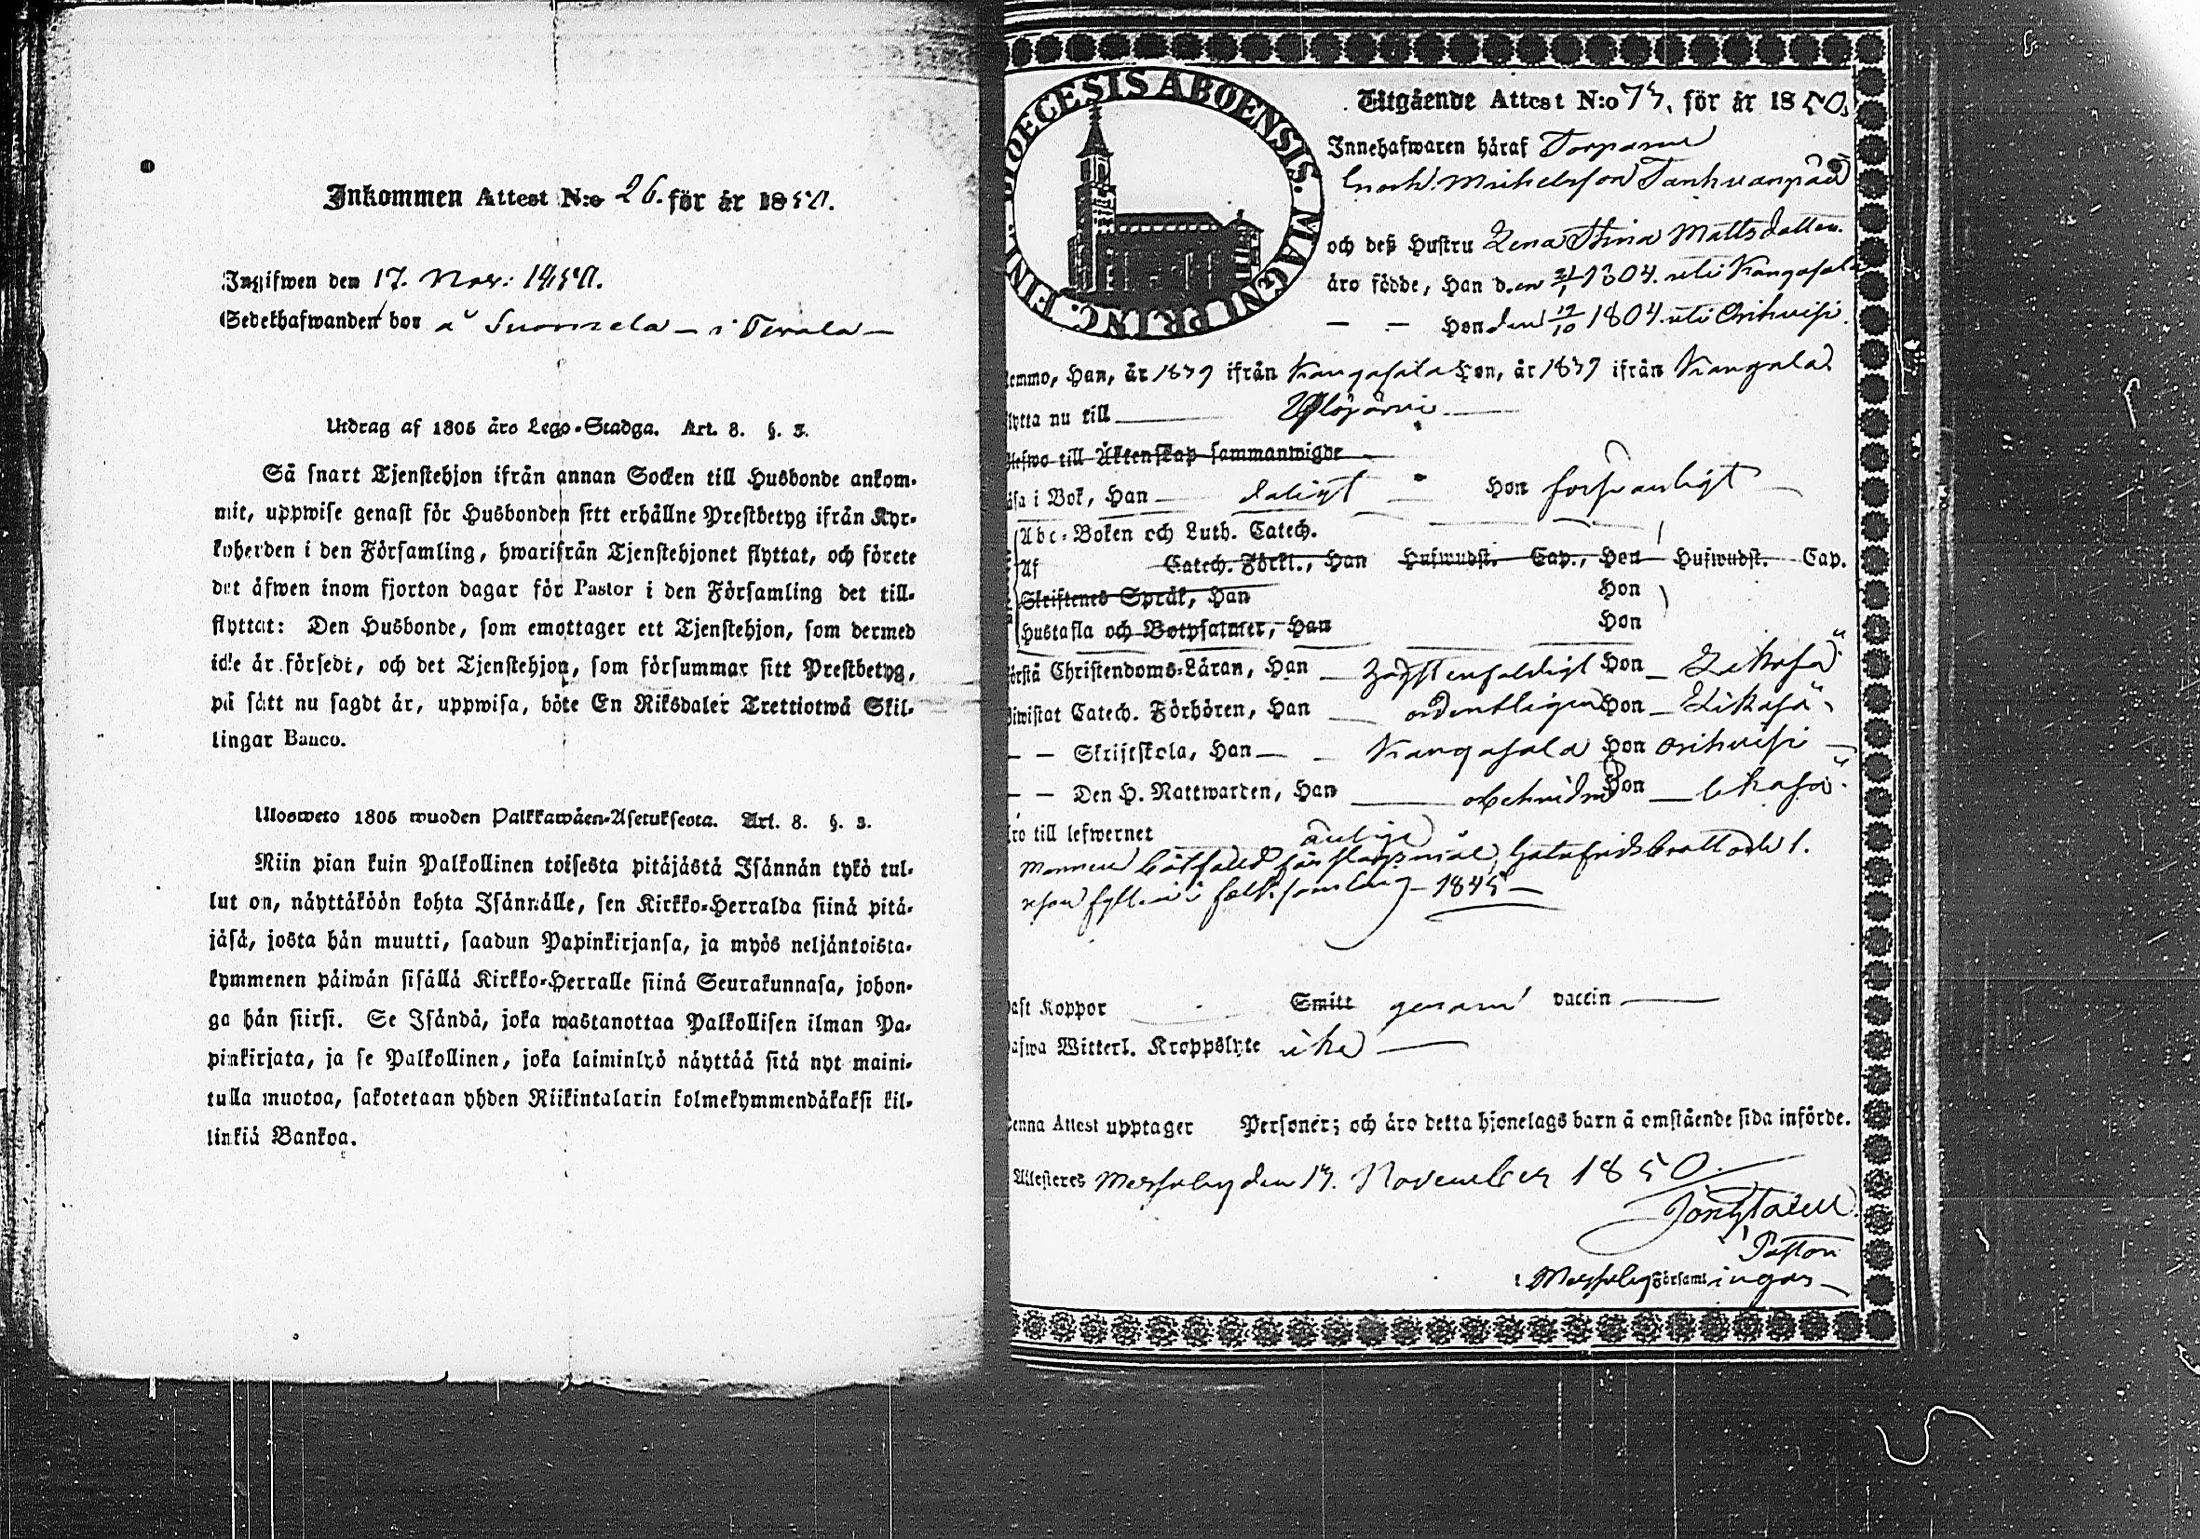 Inkommen Attest N:o 26. för år 1850.
Ingifwen den 17. Nov: 1850.
Sedelhafwanden bor å Suomela — i Tevala —
Utdrag af 1805 års Lego-Stadga. Art. 8. §. 3.
Så snart Tjenstehjon ifrån annan Socken till Husbonde ankom-
mit, uppwise genast för Husbonden sitt erhållne Prestbetyg ifrån Kyr-
koherden i den Församling, hwarifrån Tjenstehjonet flyttat, och förete
det äfwen inom fjorton dagar för Pastor i den Församling det till-
flyttat: Den Husbonde, som emottager ett Tjenstehjon, som dermed
icke är försedt, och det Tjenstehjon, som försummar sitt Prestbetyg,
på sätt nu sagdt är, uppwisa, böte En Riksdaler Trettiotwå Skil-
lingar Banco.
Ulosweto 1805 wuoden Palkkawäen-Asetuksesta. Art. 8. §. 3.
Niin pian kuin Palkollinen toisesta pitäjästä Isännän tykö tul-
lut on, näyttäköön kohta Isännälle, sen Kirkko-Herralda siinä pitä-
jäsä, josta hän muutti, saadun Papinkirjansa, ja myös neljäntoista-
kymmenen päiwän sisällä Kirkko-Herralle siinä Seurakunnasa, johon-
ga hän siirsi. Se Isändä, joka wastanottaa Palkollisen ilman Pa-
pinkirjata, ja se Palkollinen, joka laiminlyö näyttää sitä nyt maini-
tulla muotoa, sakotetaan yhden Riikintalarin kolmekymmendäkaksi kil-
linkiä Bankoa.
DIOECESIS ABOENSIS. MAGNI PRINC. FINL.
Utgående Attest N:o 73. för år 1850.
Innehafwaren häraf Torparne
Enock Michelsson Tanhuanpää
och deß Hustru Lena Stina Mattsdotter.
äro födde, Han den 31/1 1804. uti Kangasala
— — Hon den 12/10 1804 uti Orihvesi.
Kemmo, Han, år 1839 ifrån Kangasala Hon, år 1839 ifrån Kangala
flytta nu till Ylöjärvi
Blefwo till Äktenskap sammanwigde
läsa i Bok, Han — dåligt Hon försvarligt
Abc-Boken och Luth. Catech.
Af Catech. Förkl., Han Hufwudst. Cap., Hon Hufwudst. Cap.
Skriftenes Språk, Han Hon
Hustafla och Botpsalmer, Han Hon
förstå Christendoms-Läran, Han — enfaldigt Hon — Likaså
biwistat Catech. Förhören, Han — ordentligen Hon — Likaså
— — Skriftskola, Han — Kangasala Hon Orihvesi —
— — Den H. Nattwarden, Han Hon — likaså
äro till lefwernet ärliga
Mannen bötfäld för slagsmål, hetsfridsbrott och 1.
resa fylleri i folksamling — 1845 —
haft Koppor Smitt genom vaccin
hafwa Witterl. Kroppslyte icke
Denna Attest upptager Personer; och äro detta hjonelags barn å omstående sida införde.
Attesteres Messuby den 17. November 1850.
Pastor
i Messuby Församlingar